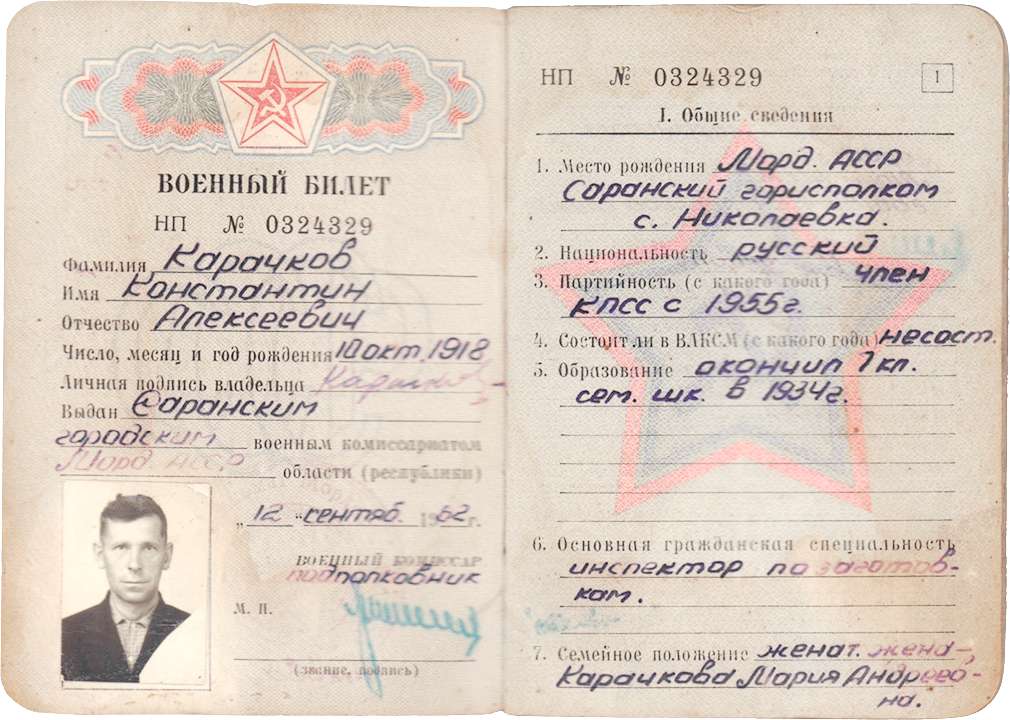 ВОЕННЫЙ БИЛЕТ
НП № 0324329
Фамилия Карачков
Имя Константин
Отчество Алексеевич
Число, месяц и год рождения 10 окт. 1918
Личная подпись владельца
Выдан Саранским
городским военным комиссариатом
Морд. АССР области (республики)
„12" сентяб. 1962 г.
ВОЕННЫЙ КОМИССАР
подполковник
М. П.
(звание, подпись)
НП № 0324329
1
I. Общие сведения
1. Место рождения Морд. АССР
Саранский горисполком
с. Николаевка.
2. Национальность русский
3. Партийность (с какого года) член
КПСС с 1955 г.
4. Состоит ли в ВЛКСМ (с какого года) не сост.
5. Образование окончил 7 кл.
сем. шк. в 1934 г.
6. Основная гражданская специальность
инспектор по заготов-
кам.
7. Семейное положение женат. жена-
Карачкова Мария Андреев-
на.